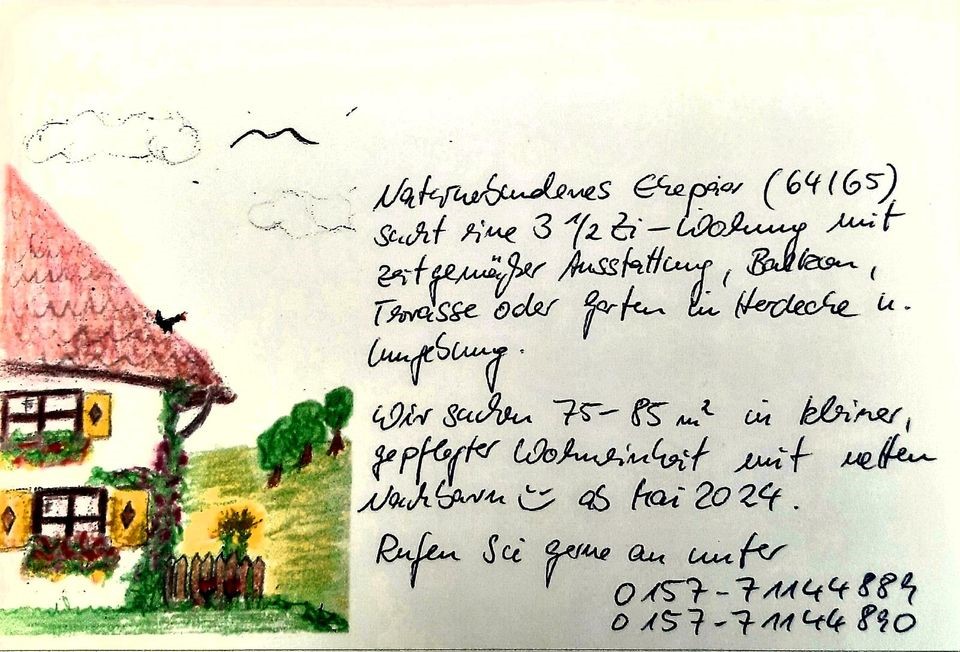 Naturverbundenes Ehepaar (64/65)
sucht eine 3 1/2 Zi-Wohnung mit
zeitgemäßer Ausstattung, Balkon,
Terrasse oder Garten in Herdecke u.
Umgebung.
Wir suchen 75-85 m² in kleiner,
gepflegter Wohneinheit mit netten
Nachbarn ab Mai 2024.
Rufen Sie gerne an unter
0157-71144889
0157-71144890